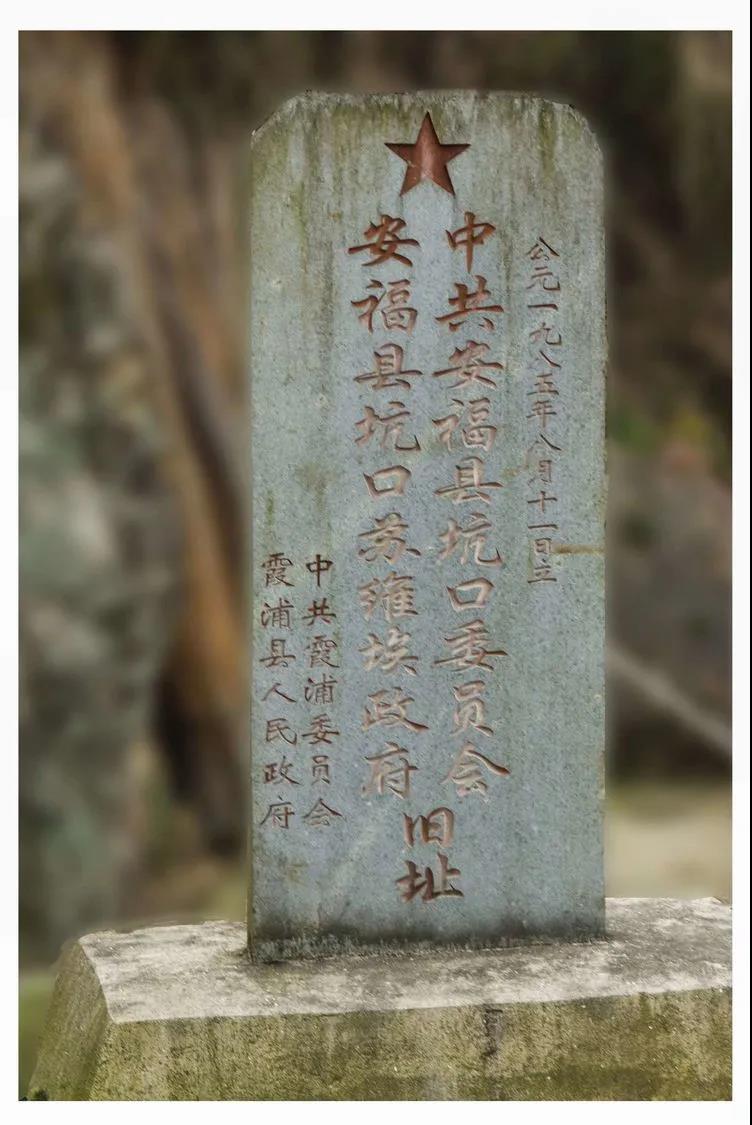 公元一九八五年八月十一日立
中共安福县坑口委员会
安福县坑口苏维埃政府
旧址
中共霞浦委员会
霞浦县人民政府